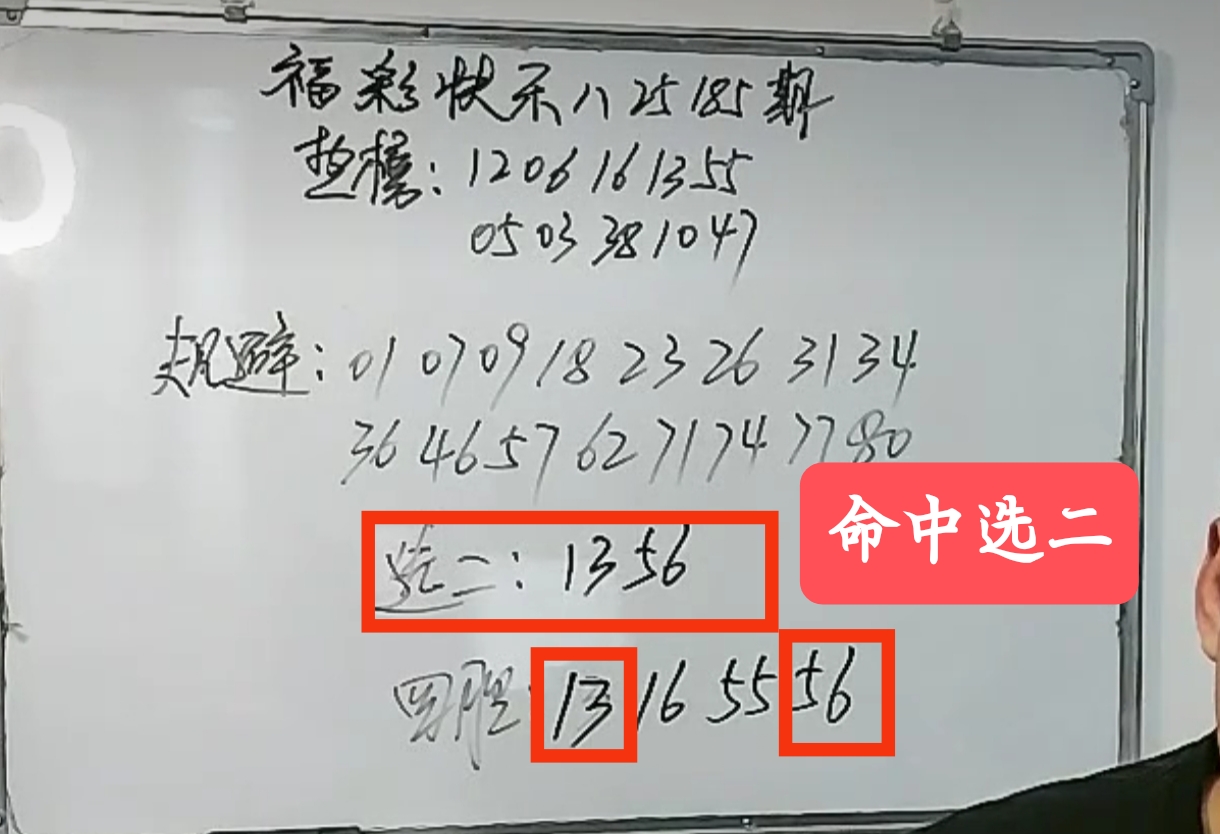 福彩快乐八25185期
热榜:12 06 16 13 55
05 03 38 10 47
规避:01 07 09 18 23 26 31 34
36 46 57 62 71 74 77 80
命中选二
选二:13 56
四胆 13 16 55 56